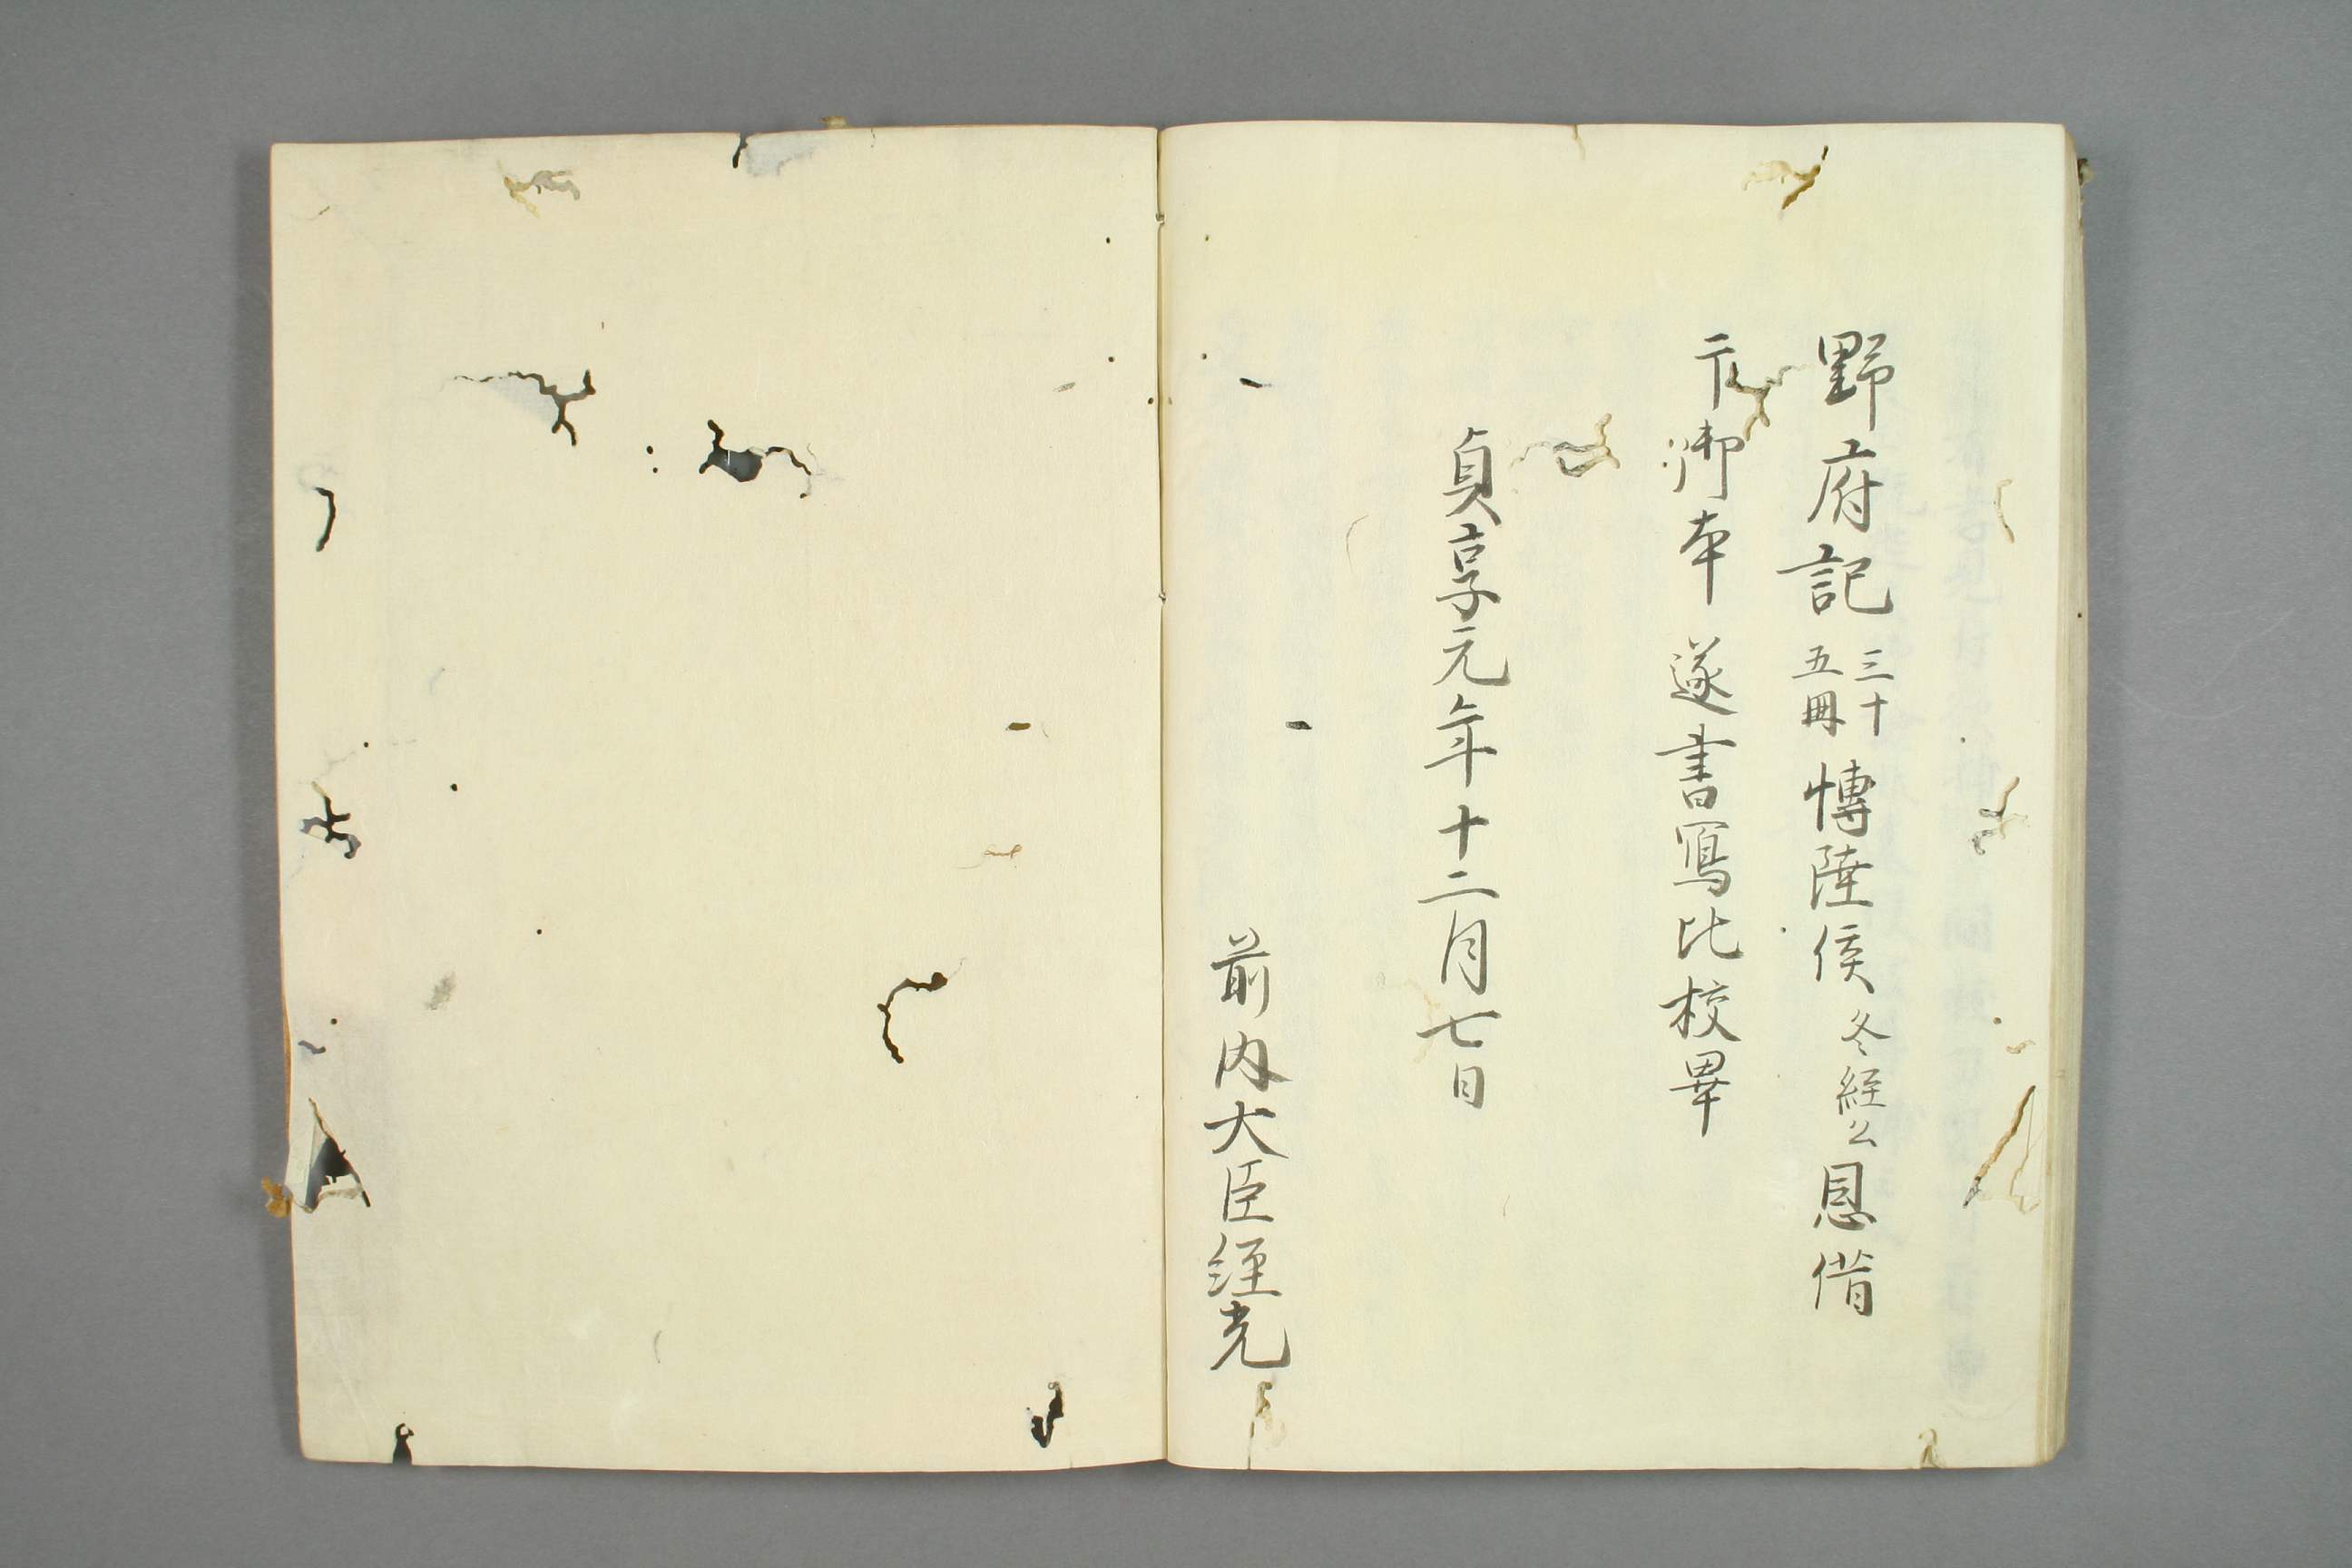 野府記三十五冊博陸侯冬経公恩借
御本遂書寫比校畢
貞享元年十二月七日
前内大臣経光